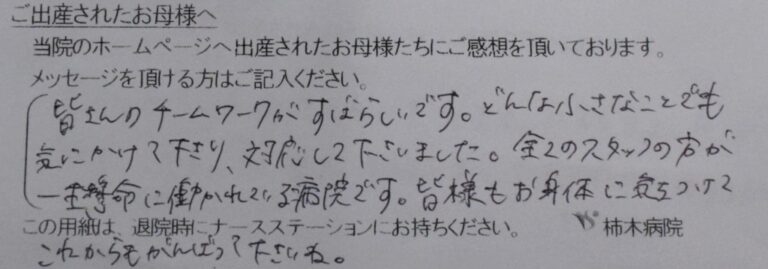 ご出産されたお母様へ
当院のホームページへ出産されたお母様たちにご感想を頂いております。
メッセージを頂ける方はご記入ください。
皆さんのチームワークがすばらしいです。どんな小さなことでも
気にかけて下さり、対応して下さいました。全てのスタッフの方が
一生懸命に働かれている病院です。皆様もお身体に気をつけて
この用紙は、退院時にナースステーションにお持ちください。 柿木病院
これからもがんばって下さいね。